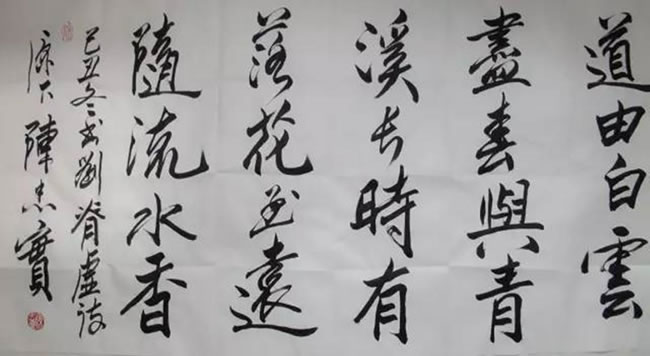 道由白雲
盡春與青
溪长時有
落花至遠
隨流水香
己丑冬书劉脊虛詩
下陳志實